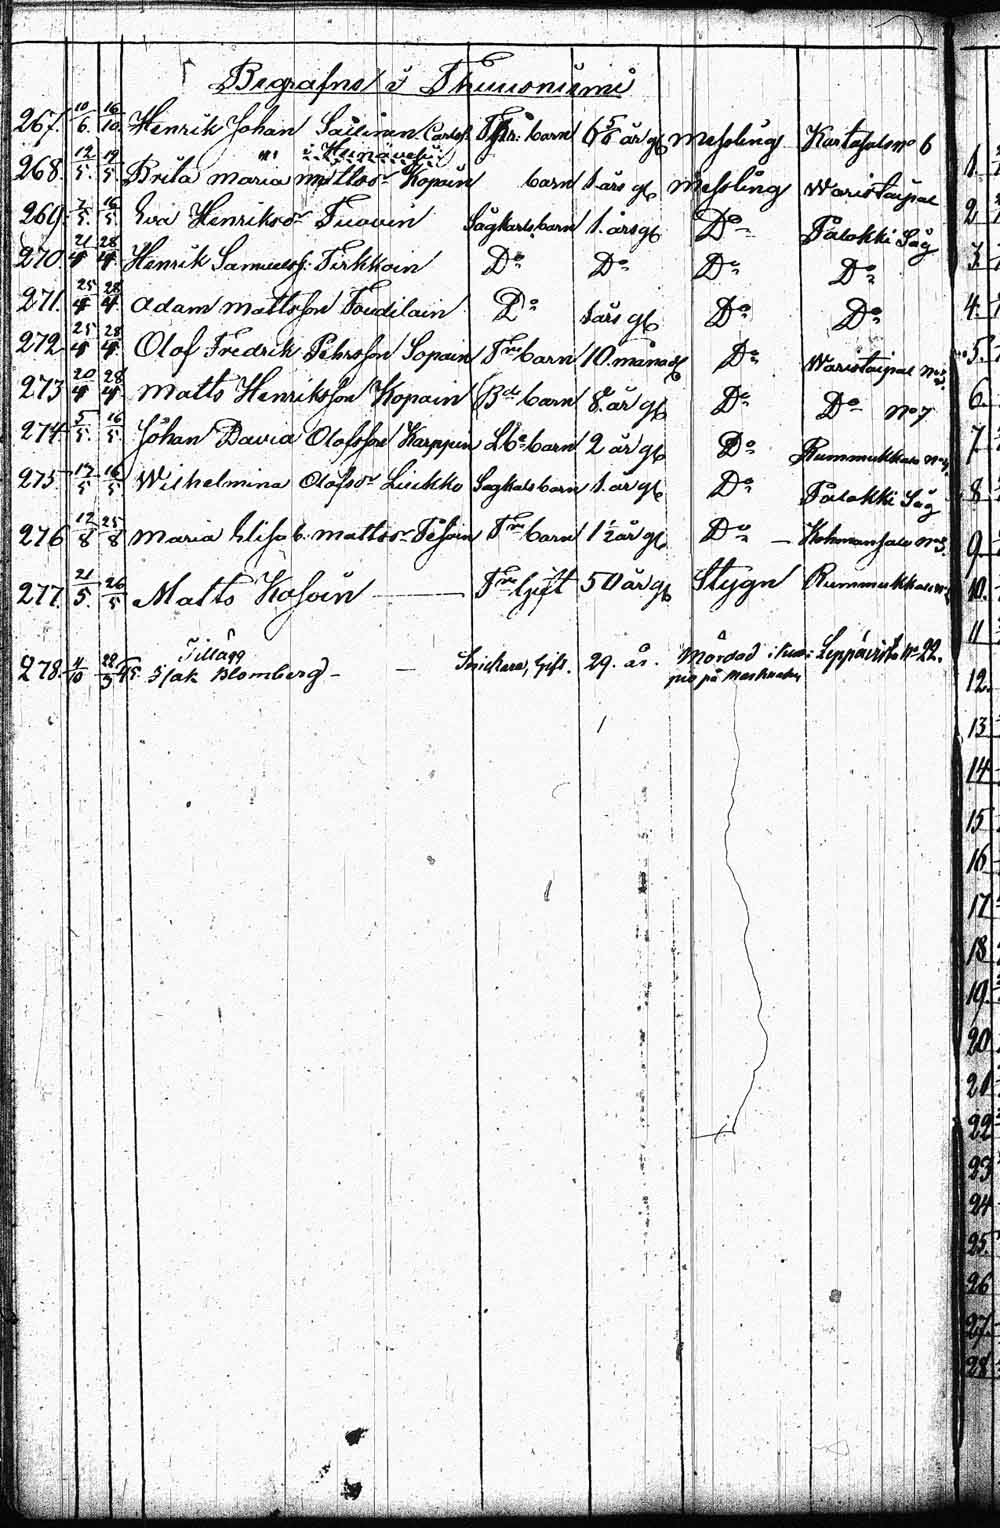 Begrafne i Thuusniemi
267. 10/6. 16/10. Henrik Johan Sallinen Carlsf. barn 6 5/8 år gl Messling Kartasalo No 6
i Heinävesi
268. 12/5. 19/5. Brita Maria Mattsdr Kopain barn 1 års gl Messling Waristaipal
269. 7/5. 16/5. Eva Henriksdr Tuovin Sågkarls barn 1 års gl Do Palokki Såg
270. 21/4 28/4. Henrik Samuelsf. Tirkkoin Do Do Do Do
271. 25/4 28/4. Adam Mattsson Do 1 års gl Do Do
272 25/4 28/4. Olof Fredrik Pehrsson Sopain Trp barn 10 månad gl Do Waristaipal
273 20/4 28/4. Matts Henriksson Kopain Bde barn 8 år gl Do Do No 7
274 5/5. 16/5. Johan David Olofsson Karppin barn 2 år gl Do Rummukkala
275. 17/5 16/5. Wilhelmina Olofsdr Liukko Sågkarls barn 1 år gl Do Palokki Såg
276 12/8 25/8 Maria Elisab. Mattsdr barn 1½ år gl Do —
277. 21/5. 26/5 Matts Kosoin — gift 50 år gl Stygn Rummukkala
Tillägg
278. 4/10 Isak Blomberg — Snickare, Gift. 29. år. Mördad i Kuo- Leppävirta No 22.
pio på Marknaden
1
2
3
4.
5.
6.
7
8
9
10.
11
12.
13
14
15
16
17
18
19.
20
21
22
23
24
25.
26
27.
28